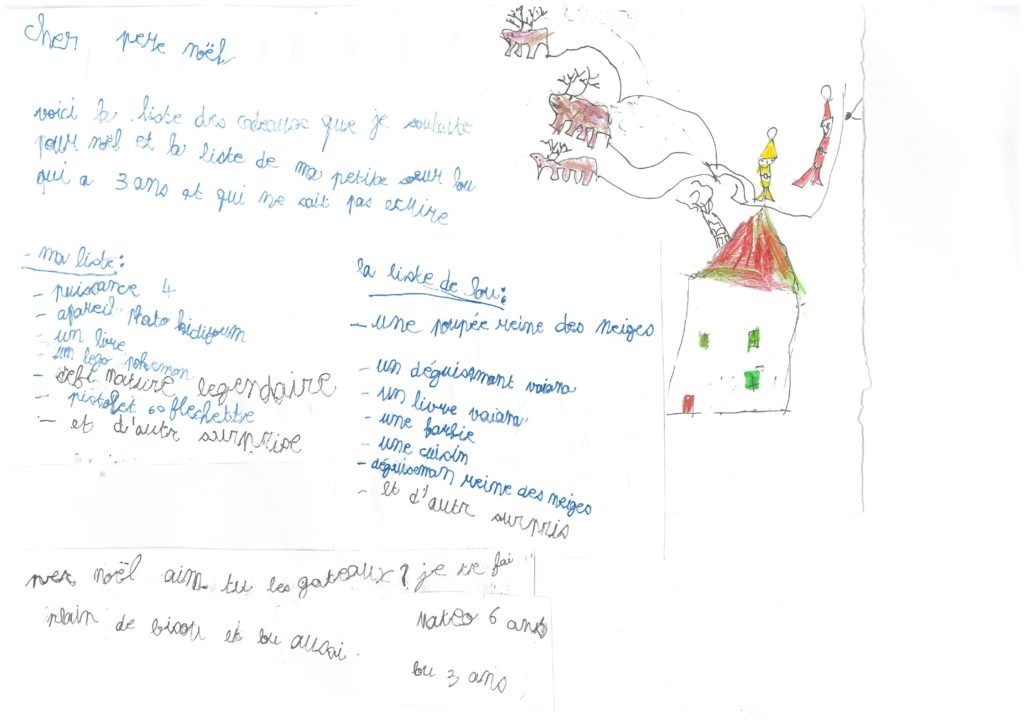 cher pere noël
voici la liste des cadeaux que je souhaite
pour noël et la liste de ma petite soeur lou
qui a 3 ans et qui ne sait pas ecrire
- ma liste:
- puissance 4
- apareil photo kidizoum
- un livre
- un lego pokemon
- defi nature legendaire
- pistolet 60 flechettre
- et d'autr surprise
la liste de lou:
- une poupée reine des neiges
- un déguisemant vaiana
- un livre vaiana
- une barbie
- une cuisin
- déguiseman reine des neiges
- et d'autr surpris
noël aim tu les gateaux? je te fai
plain de bisou et lou aussi.
6 ans
lou 3 ans